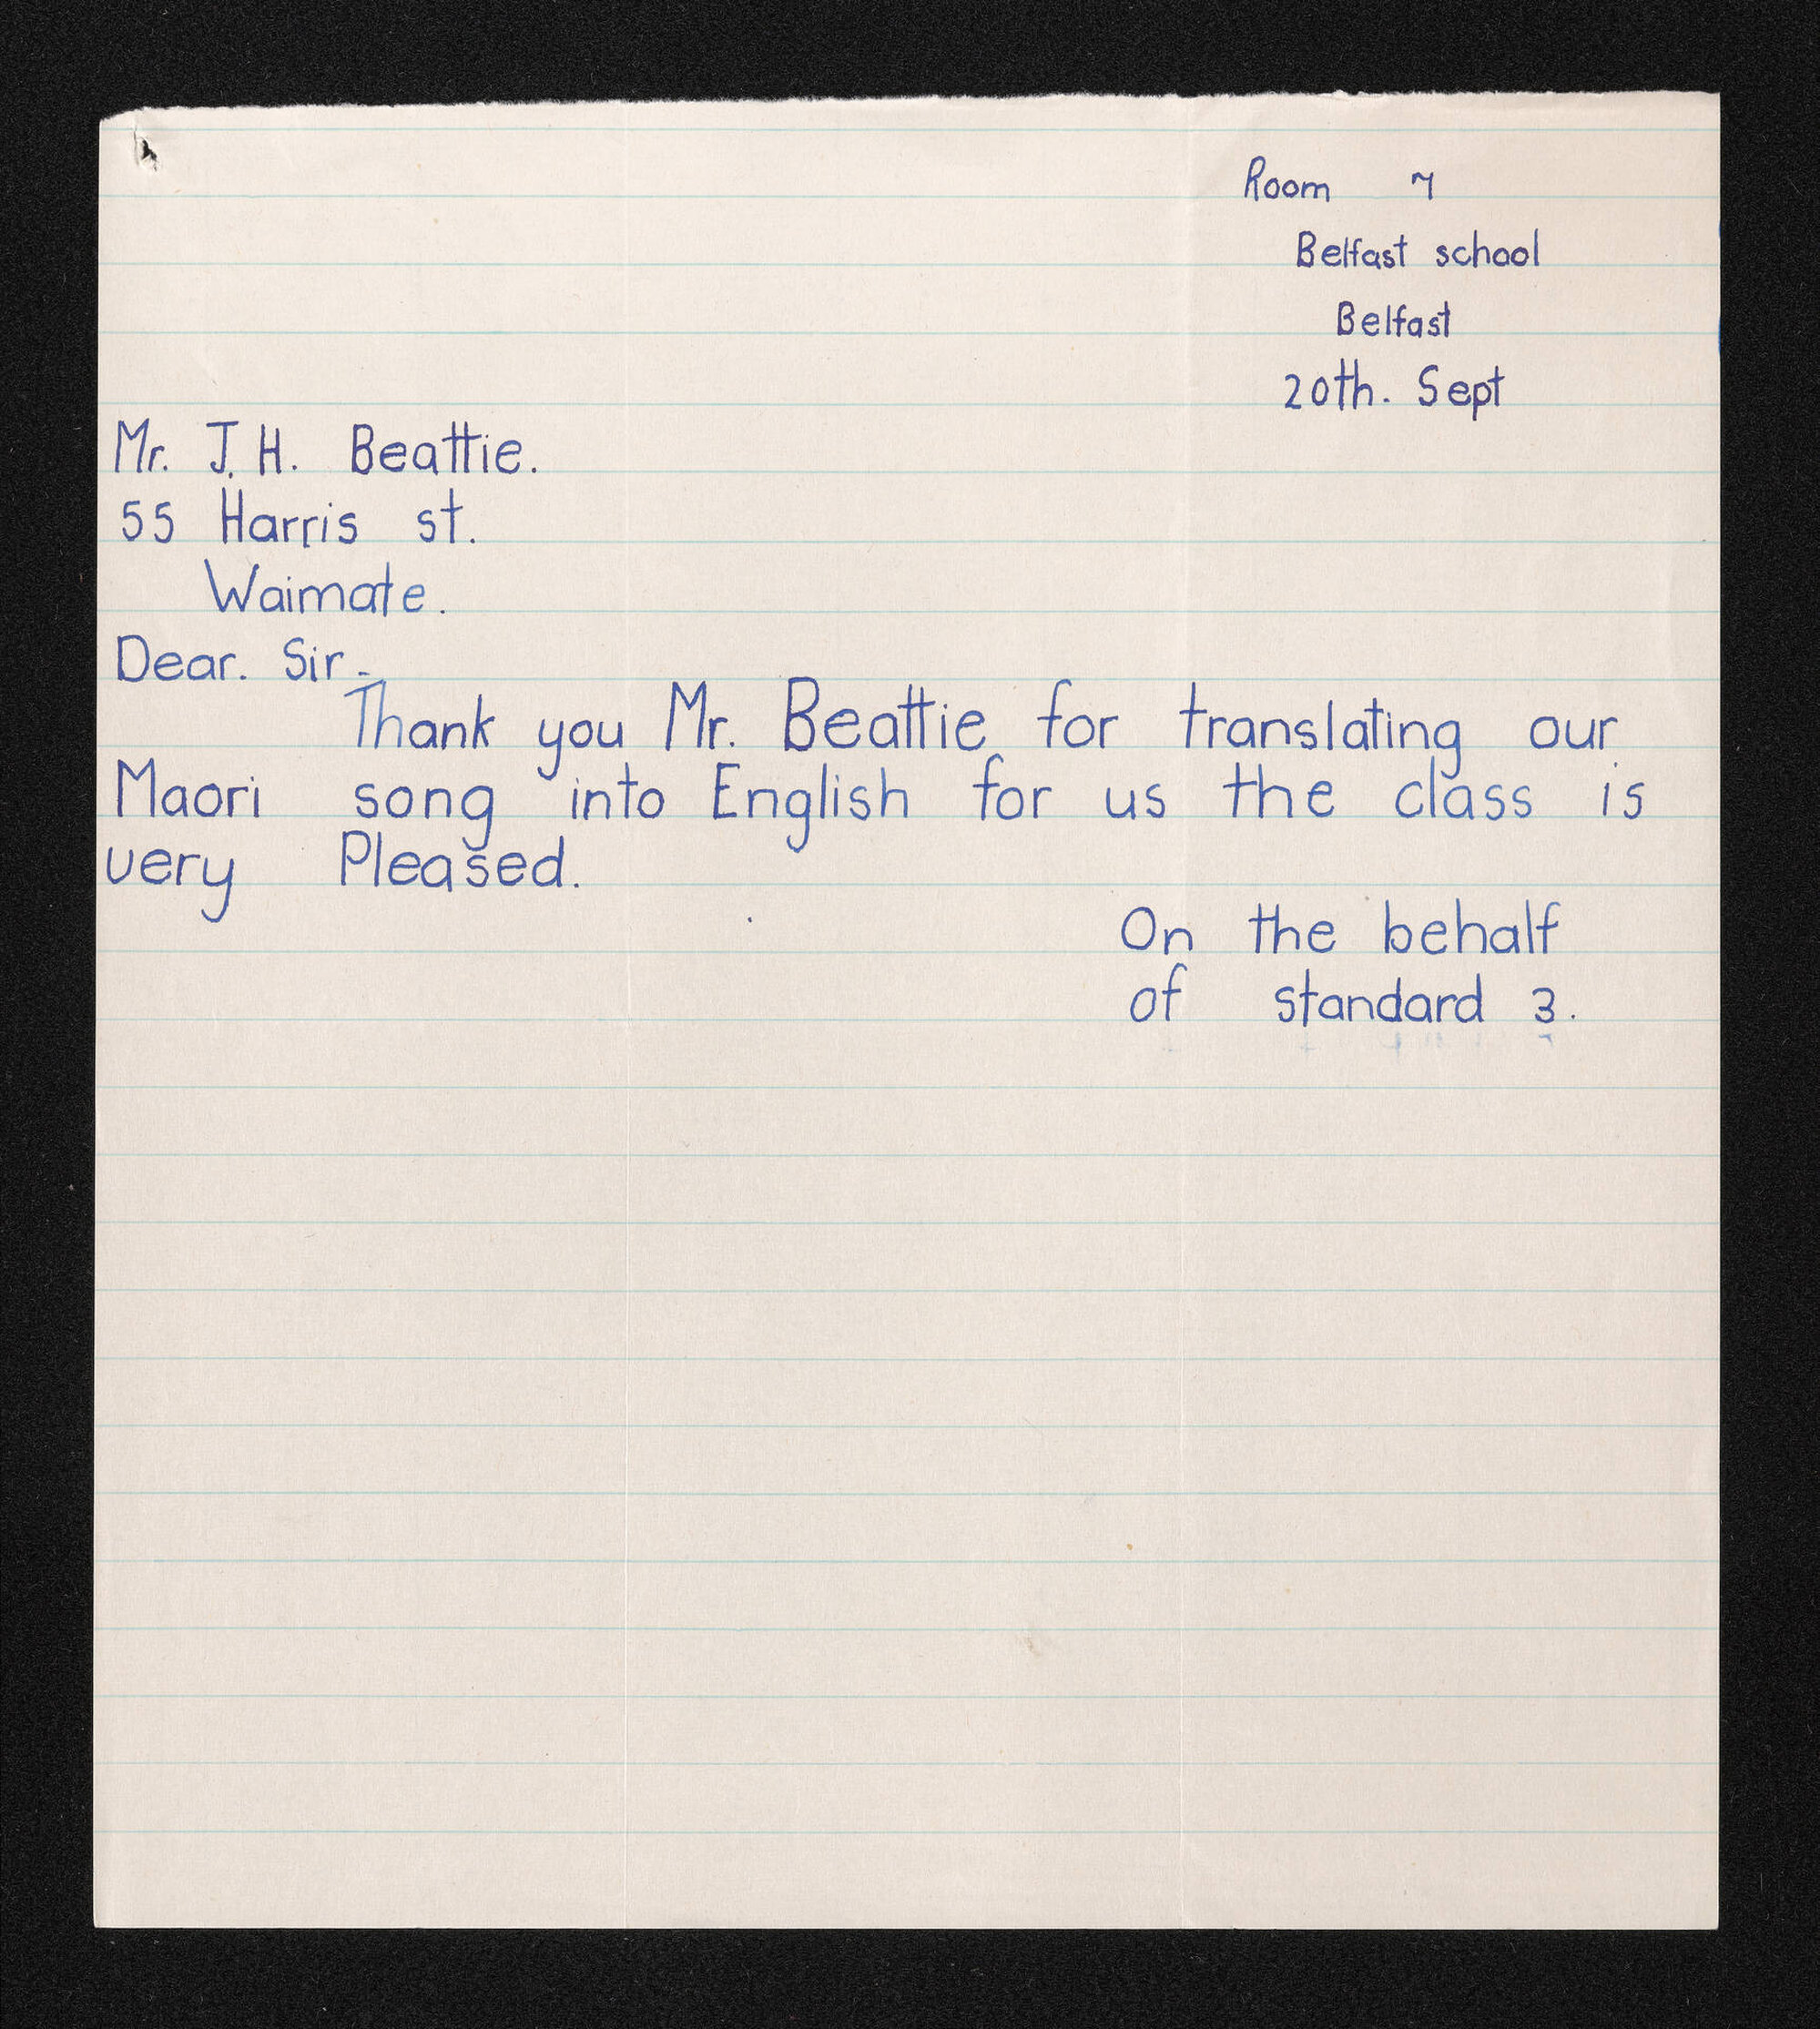 Room 7
Belfast school
Belfast
20th. Sept
Mr. J. H. Beattie.
55 Harris st.
Waimate.
Dear. Sir.
Thank you Mr. Beattie for translating our
Maori song into English for us the class is
very Pleased.
On the behalf
of standard 3.